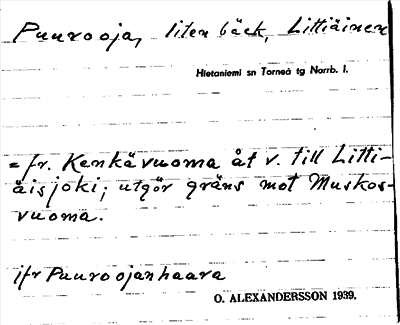 Puurooja, liten bäck, Littiäinen
Hietaniemi sn Torneå tg Norrb. l.
= fr. Kenkävuoma åt v. till Litti-
äisjoki; utgör gräns mot Muskos-
vuoma.
jfr Puuroojanhaara
O. ALEXANDERSSON 1939.